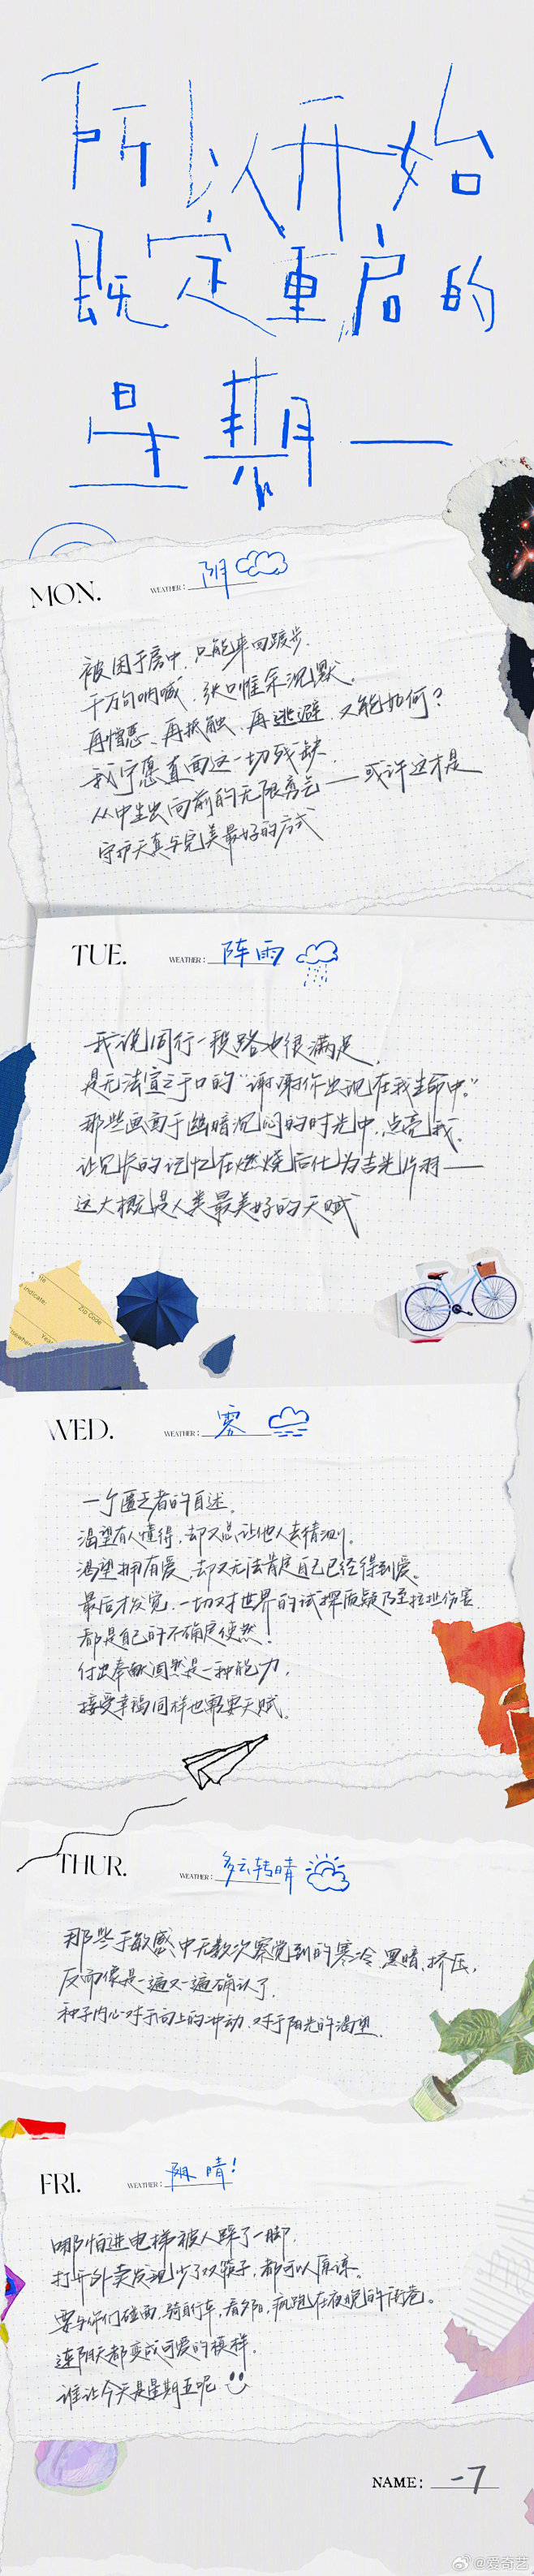 所以开始
既定重启的
星期一
MON.
WEATHER: 阴
被困于房中，只能来回踱步.
千万句呐喊，张口惟余沉默。
再憎恶、再抵触、再逃避，又能如何？
我宁愿直面这一切残缺.
从中生出向前的无限勇气——或许这才是
守护天真与完美最好的方式
TUE.
WEATHER: 阵雨
我说同行一段路也很满足，
是无法宣之于口的“谢谢你出现在我生命中。”
那些画面于幽暗沉闷的时光中，点亮我.
让冗长的记忆在燃烧后化为吉光片羽——
这大概是人类最美好的天赋
indicate:
Zip Code
Year
WED.
WEATHER: 雾
一个匮乏者的自述。
渴望有人懂得，却又总让他人去猜测。
渴望拥有爱，却又无法肯定自己已经得到爱。
最后才发觉，一切对世界的试探质疑乃至拉扯伤害.
都是自己的不确定使然！
付出奉献固然是一种能力，
接受幸福同样也需要天赋。
THUR.
WEATHER: 多云转晴
那些于敏感中无数次察觉到的寒冷、黑暗、挤压，
反而像是一遍又一遍确认了.
种子内心对于向上的冲动，对于阳光的渴望.
FRI.
WEATHER: 晴！
哪怕进电梯被人踩了一脚.
打开外卖发现少了双筷子，都可以原谅。
要与你们碰面，骑自行车，看夕阳，疯跑在夜晚的街巷。
连阴天都变成可爱的模样。
谁让今天是星期五呢
NAME: -7
@爱奇艺